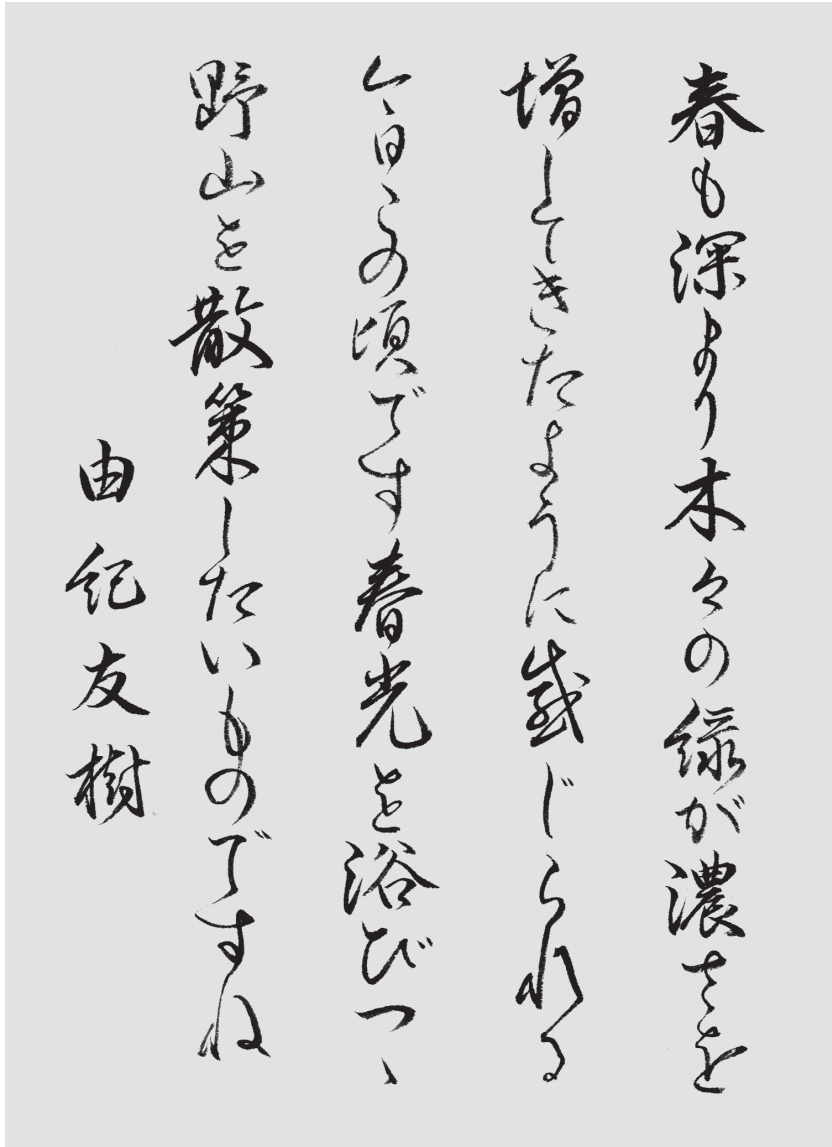 春も深より木々の緑が濃さを
増してきたように感じられる
今日この頃です春光を浴びつゝ
野山を散策したいものですね
由紀友樹